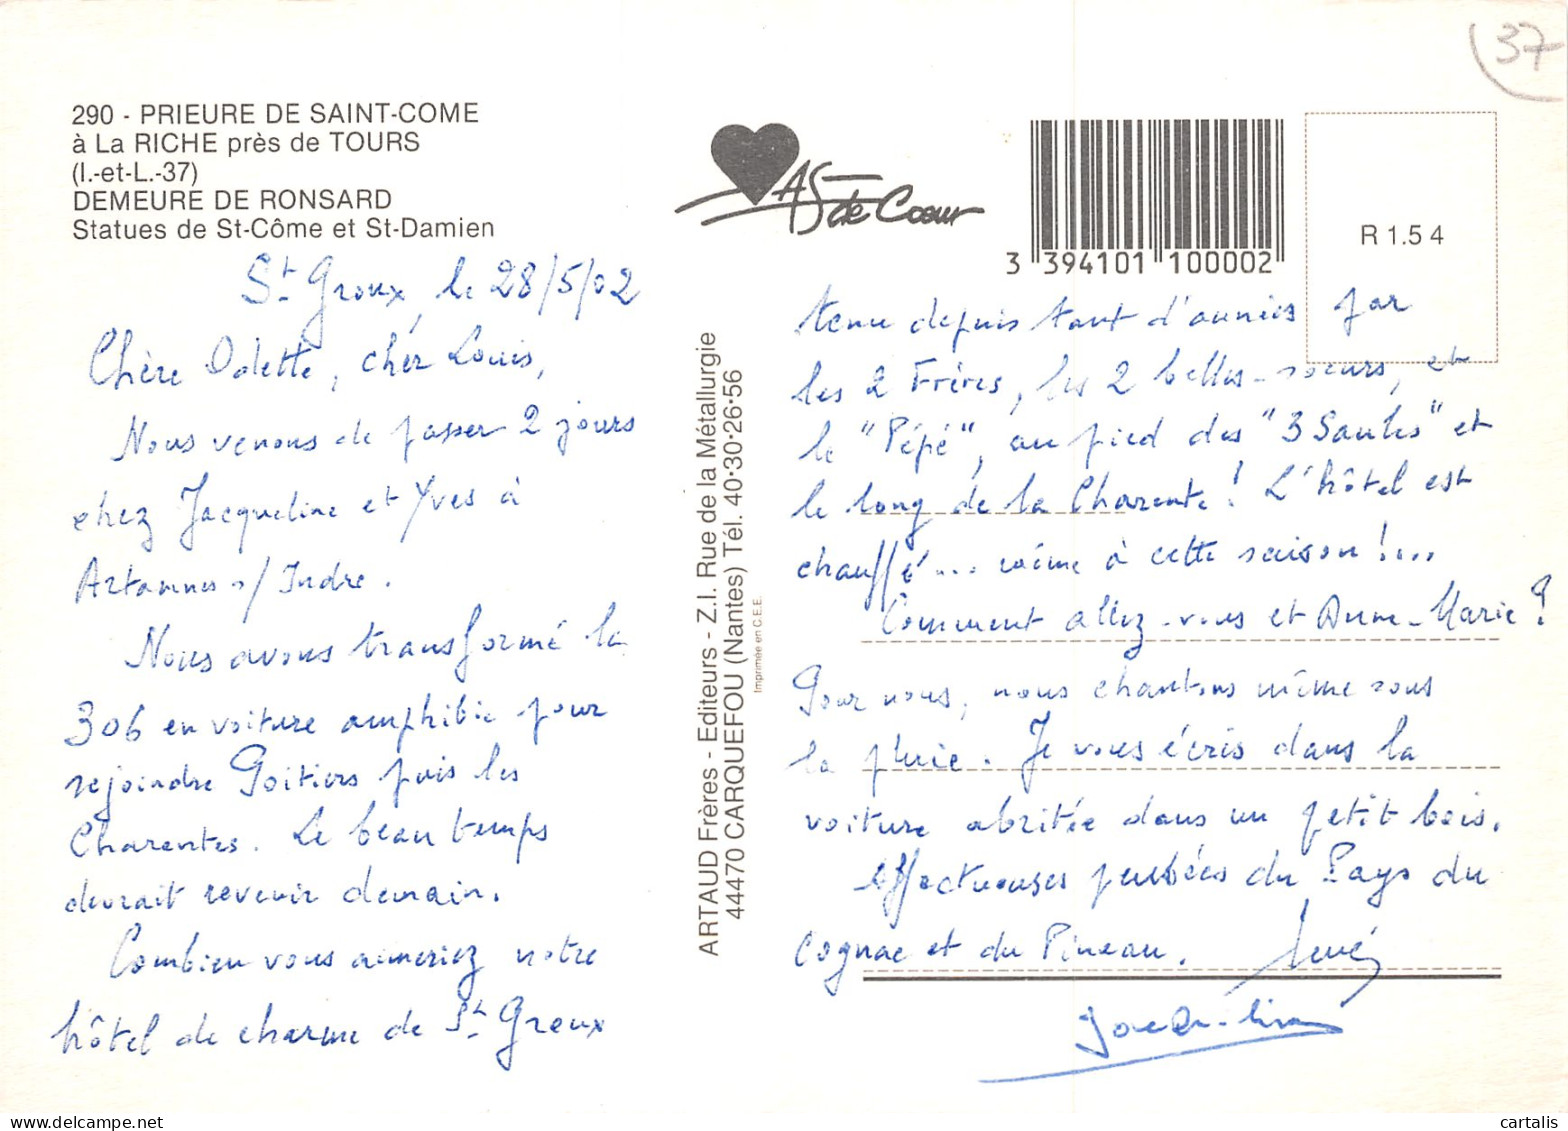 37
290 - PRIEURE DE SAINT-COME
à La RICHE près de TOURS
(I.-et-L.-37)
DEMEURE DE RONSARD
Statues de St-Côme et St-Damien
AS de Cœur
3 394101 100002
R 1.5 4
St Groux, le 28/5/02
Chère Odette, cher Louis,
Nous venons de passer 2 jours
chez Jacqueline et Yves à
Artannes s/Indre.
Nous avons transformé la
306 en voiture amphibie pour
rejoindre Poitiers puis les
Charentes. Le beau temps
devrait revenir demain.
Combien vous aimeriez notre
hôtel de charme de St Groux
ARTAUD Frères - Editeurs - Z.I. Rue de la Métallurgie
44470 CARQUEFOU (Nantes) Tél. 40·30·26·56
Imprimée en C.E.E.
tenu depuis tant d'années par
les 2 Frères, les 2 belles-soeurs, et
le "Pépé", au pied des "3 Saules" et
le long de la Charente! L'hôtel est
chauffé... même à cette saison!...
Comment allez-vous et Anne-Marie?
Pour nous, nous chantons même sous
la pluie. Je vous écris dans la
voiture abritée dans un petit bois.
Affectueuses pensées du Pays du
Cognac et du Pineau.
Jacqueline
cartalis